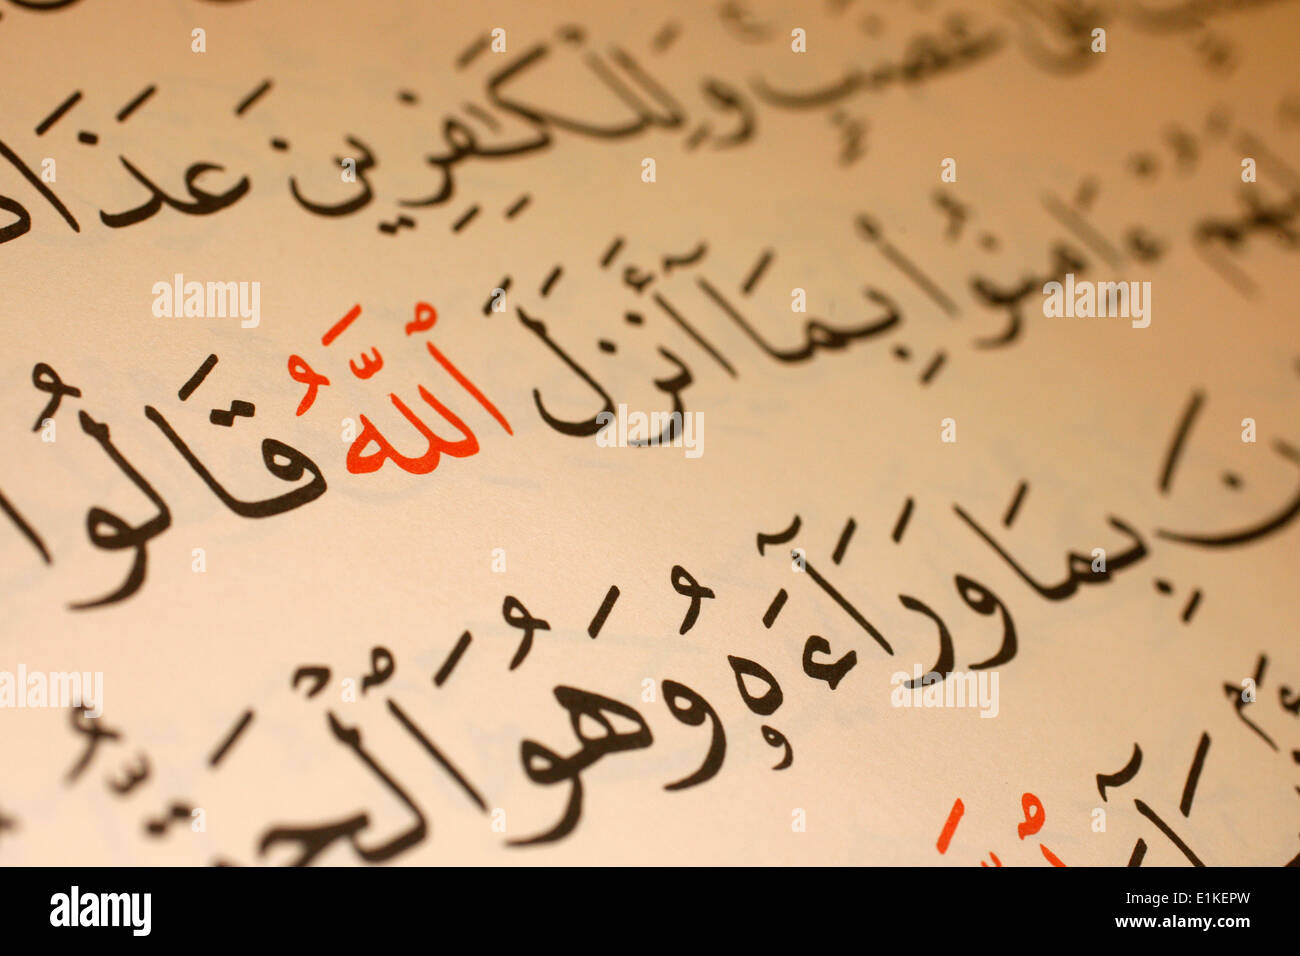 عَلَىٰ غَضَبٍ وَلِلْكَٰفِرِينَ عَذَا
لَهُمْ ءَامِنُوا۟ بِمَآ أَنزَلَ ٱللَّهُ قَالُوا۟
نَ بِمَا وَرَآءَهُۥ وَهُوَ ٱلْحَقُّ
alamy
alamy
alamy
alamy
alamy
Image ID: E1KEPW
www.alamy.com